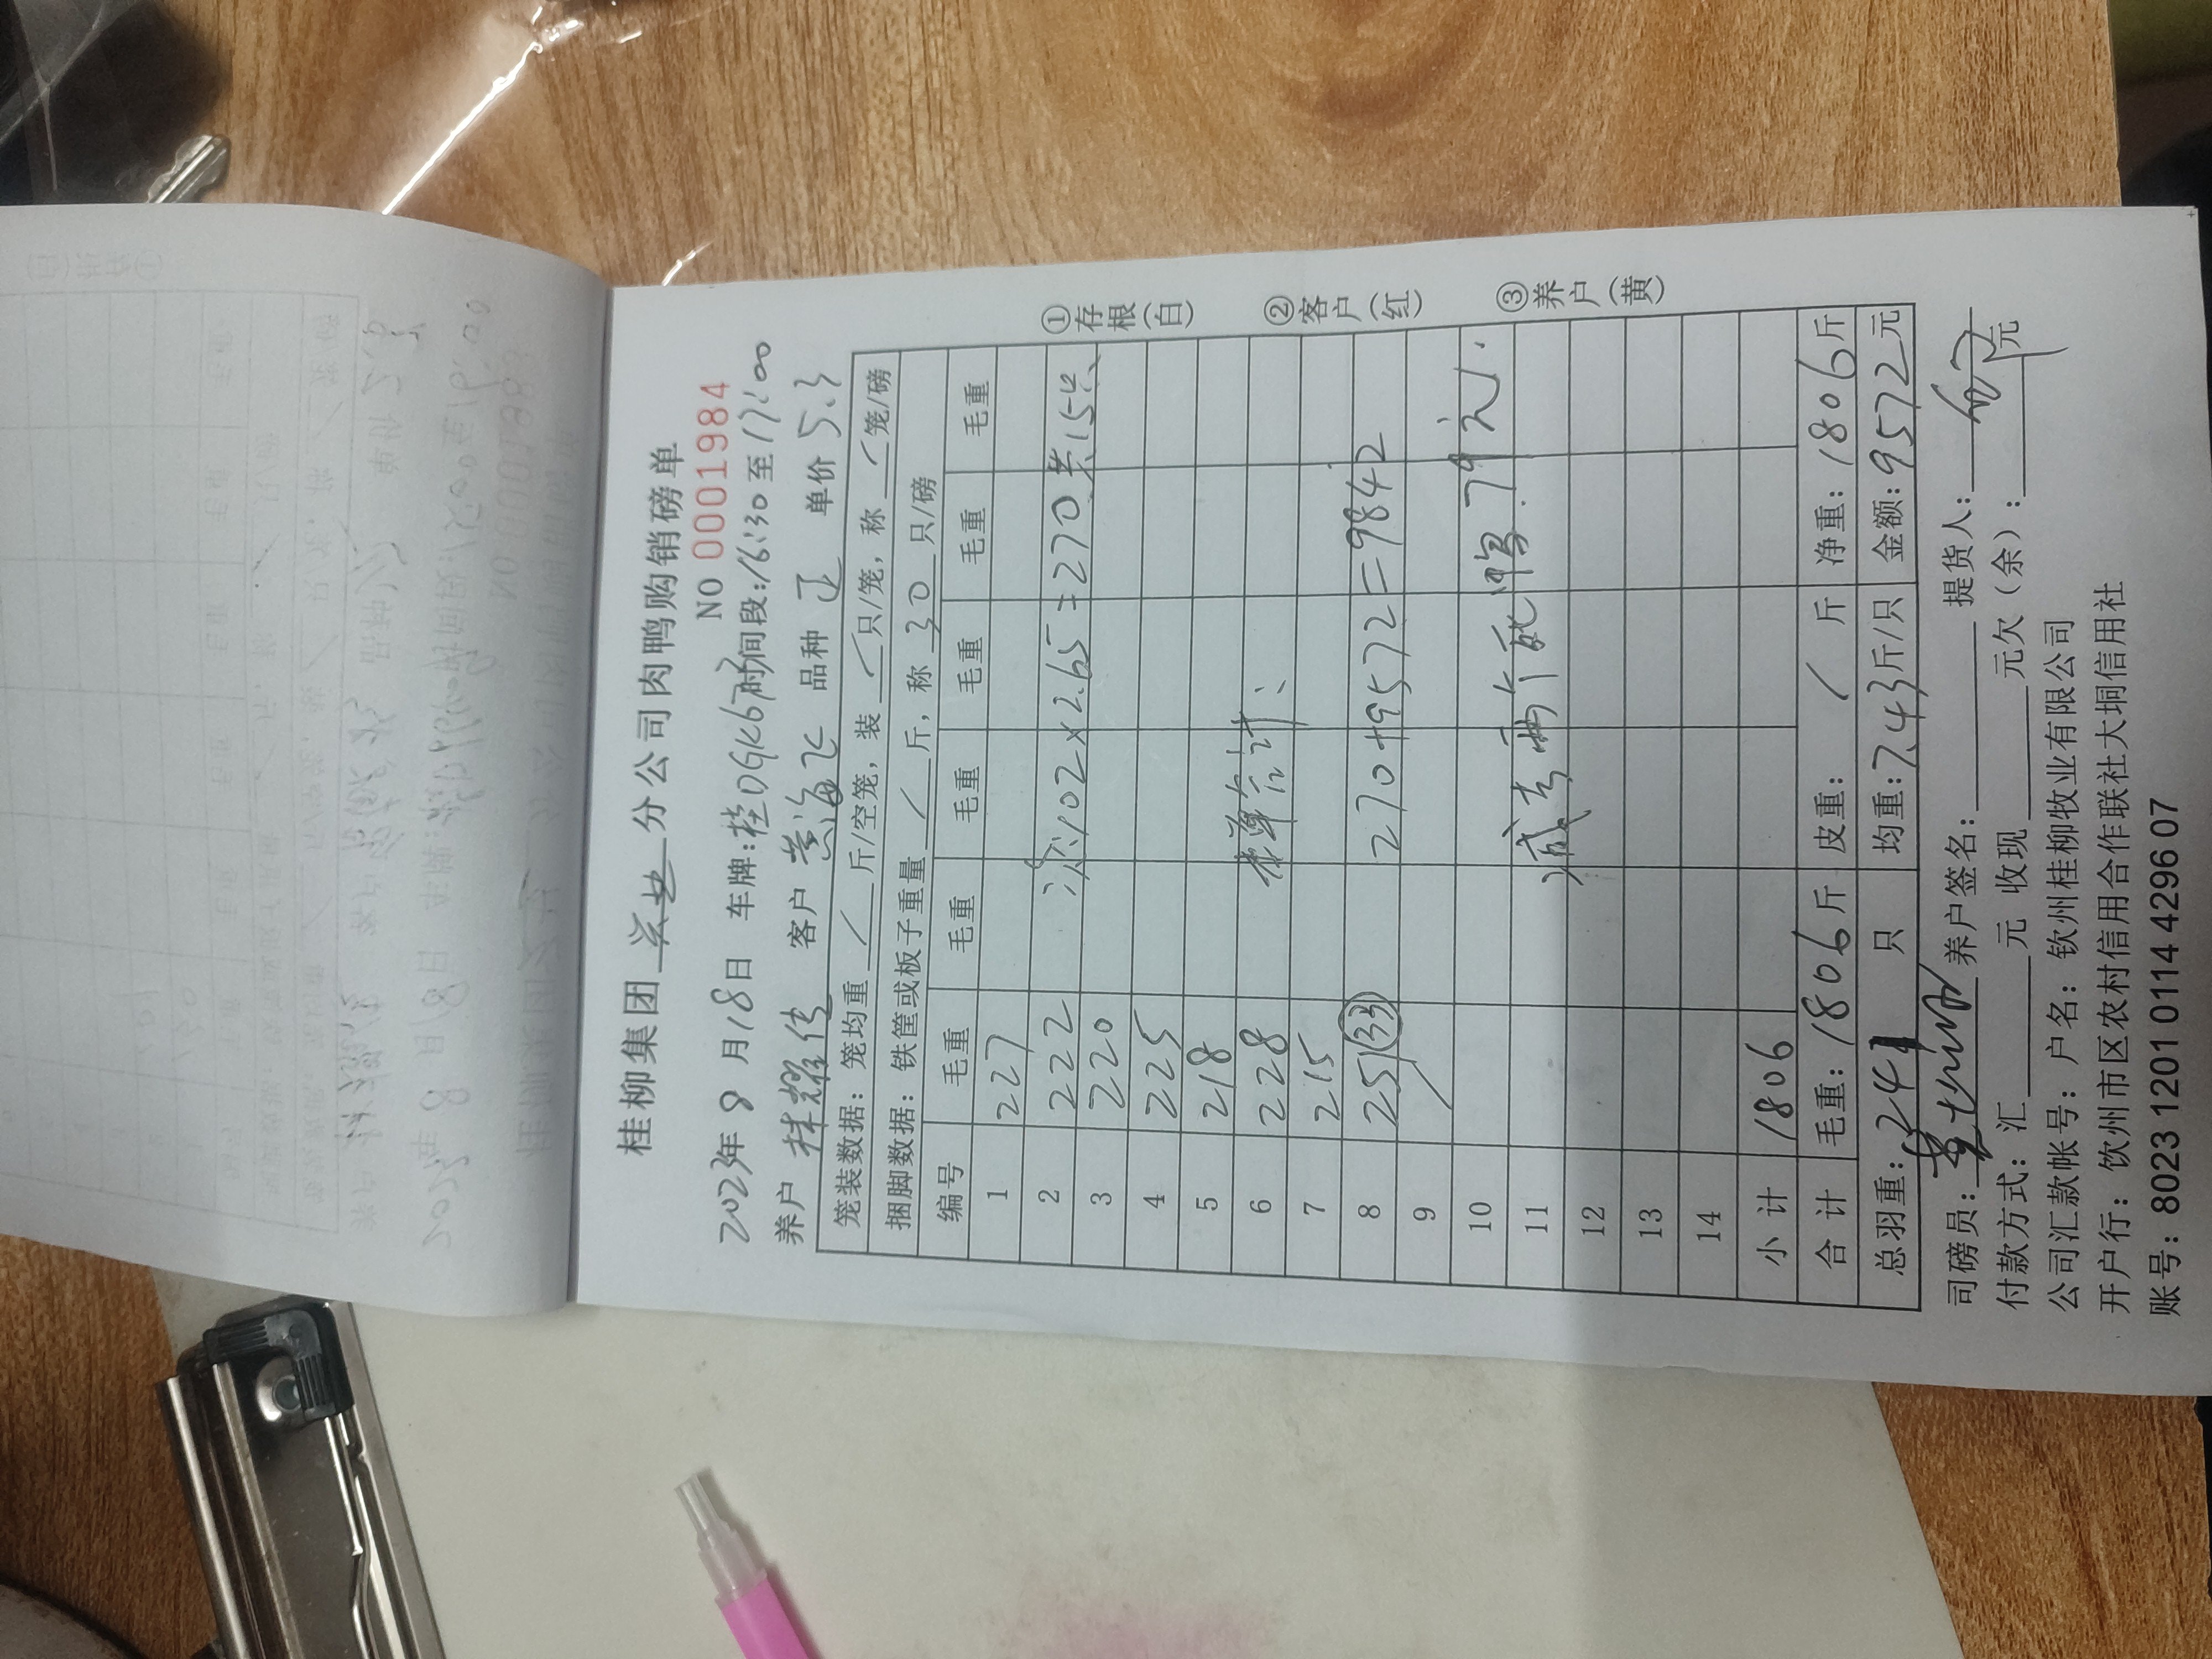 桂柳集团 灵山 分公司肉鸭购销磅单
NO 0001984
2023年 8 月18日 车牌:桂D9K67 时间段:16:30 至 17:00
养户 林耀传 客户 黄海飞 品种 正 单价 5.3
笼装数据: 笼均重 / 斤/空笼, 装 / 只/笼, 称 / 笼/磅
捆脚数据: 铁筐或板子重量 / 斤, 称 30 只/磅
编号 毛重 毛重 毛重 毛重 毛重 毛重
1 227
2 222 次 102×2.65=270 共15只
3 220
4 225
5 218
6 228 榉单合计:
7 215
8 251(33) 270+9572=9842
9 /
10
11 减去两个死鸭79元.
12
13
14
小 计 1806
合 计 毛重: 1806斤 皮重: / 斤 净重: 1806斤
总羽重: 241 只 均重: 7.43斤/只 金额: 9572元
司磅员: 养户签名: 提货人:
付款方式: 汇 元 收现 元欠(余): 元
公司汇款帐号: 户名: 钦州桂柳牧业有限公司
开户行: 钦州市区农村信用合作联社大垌信用社
账号: 8023 1201 0114 4296 07
①存根(白)
②客户(红)
③养户(黄)